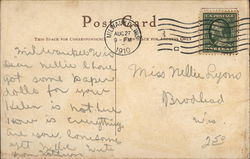 Post Card
THIS SPACE FOR CORRESPONDENCE
MILWAUKEE, WIS.
AUG 27
9-PM
1910
Milwaukee Wis
Dear Nellie I have
got some paper
dolls for your
Helen is not here
How is everything
Are you lonesome
yet Nellie write
soon
Miss Nellie Lyons
Brodhead
Wis.
250